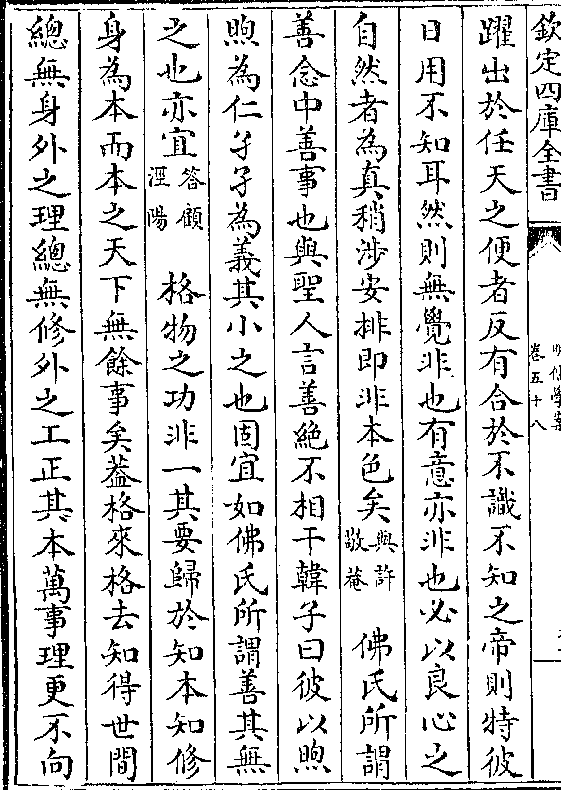 欽定四庫全書
明儒學案
卷五十八
躍出於任天之便者反有合於不識不知之帝則特彼
日用不知耳然則無覺非也有意亦非也必以良心之
自然者為真稍涉安排即非本色矣與許敬菴 佛氏所謂
善念中善事也與聖人言善絶不相干韓子曰彼以煦
煦為仁孑孑為義其小之也固宜如佛氏所謂善其無
之也亦宜答顧涇陽 格物之功非一其要歸於知本知修
身為本而本之天下無餘事矣葢格來格去知得世間
總無身外之理總無修外之工正其本萬事理更不向